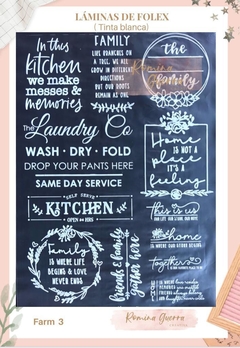 LÁMINAS DE FOLEX
( Tinta blanca)
In this
kitchen
we make
messes &
memories
FAMILY
LIKE BRANCHES ON
A TREE, WE ALL
GROW IN DIFFERENT
DIRECTIONS
BUT OUR ROOTS
REMAIN AS ONE.
the
family
The
Laundry Co
WASH · DRY · FOLD
DROP YOUR PANTS HERE
SAME DAY SERVICE
Home
IS NOT A
PLACE
it's a
feeling
SELF SERVE
KITCHEN
OPEN 24 HRS
this is us
Family
IS WHERE LIFE
BEGINS & LOVE
NEVER ENDS
friends & family
gather here
home
IS WHERE OUR STORY BEGINS
together
Farm 3
Romina Guerra